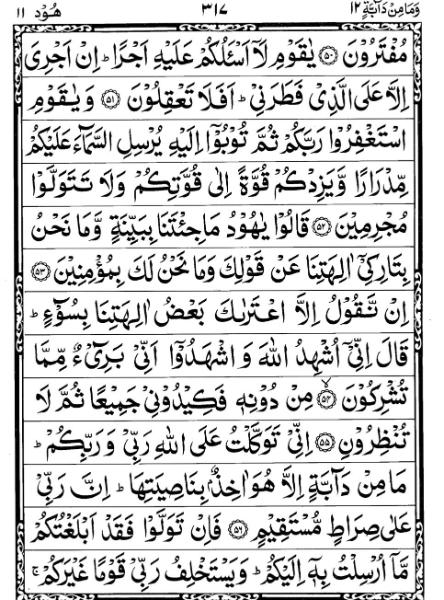 وَمَا مِنْ دَآبَّةٍ ١٢ ٣١٧ هُوْد ١١
مُفْتَرُوْنَ ﴿٥٠﴾ يٰقَوْمِ لَآ اَسْـَٔلُكُمْ عَلَيْهِ اَجْرًا ؕ اِنْ اَجْرِىَ
اِلَّا عَلَى الَّذِىْ فَطَرَنِىْ ؕ اَفَلَا تَعْقِلُوْنَ ﴿٥١﴾ وَيٰقَوْمِ
اسْتَغْفِرُوْا رَبَّكُمْ ثُمَّ تُوْبُوْٓا اِلَيْهِ يُرْسِلِ السَّمَآءَ عَلَيْكُمْ
مِّدْرَارًا وَّيَزِدْكُمْ قُوَّةً اِلٰى قُوَّتِكُمْ وَلَا تَتَوَلَّوْا
مُجْرِمِيْنَ ﴿٥٢﴾ قَالُوْا يٰهُوْدُ مَا جِئْتَنَا بِبَيِّنَةٍ وَّمَا نَحْنُ
بِتَارِكِىْٓ اٰلِهَتِنَا عَنْ قَوْلِكَ وَمَا نَحْنُ لَكَ بِمُؤْمِنِيْنَ ﴿٥٣﴾
اِنْ نَّقُوْلُ اِلَّا اعْتَرٰىكَ بَعْضُ اٰلِهَتِنَا بِسُوْٓءٍ ؕ
قَالَ اِنِّىْٓ اُشْهِدُ اللّٰهَ وَاشْهَدُوْٓا اَنِّىْ بَرِىْٓءٌ مِّمَّا
تُشْرِكُوْنَ ﴿٥٤﴾ مِنْ دُوْنِهٖ فَكِيْدُوْنِىْ جَمِيْعًا ثُمَّ لَا
تُنْظِرُوْنِ ﴿٥٥﴾ اِنِّىْ تَوَكَّلْتُ عَلَى اللّٰهِ رَبِّىْ وَرَبِّكُمْ ؕ
مَا مِنْ دَآبَّةٍ اِلَّا هُوَ اٰخِذٌۢ بِنَاصِيَتِهَا ؕ اِنَّ رَبِّىْ
عَلٰى صِرَاطٍ مُّسْتَقِيْمٍ ﴿٥٦﴾ فَاِنْ تَوَلَّوْا فَقَدْ اَبْلَغْتُكُمْ
مَّآ اُرْسِلْتُ بِهٖٓ اِلَيْكُمْ ؕ وَيَسْتَخْلِفُ رَبِّىْ قَوْمًا غَيْرَكُمْ ۚ